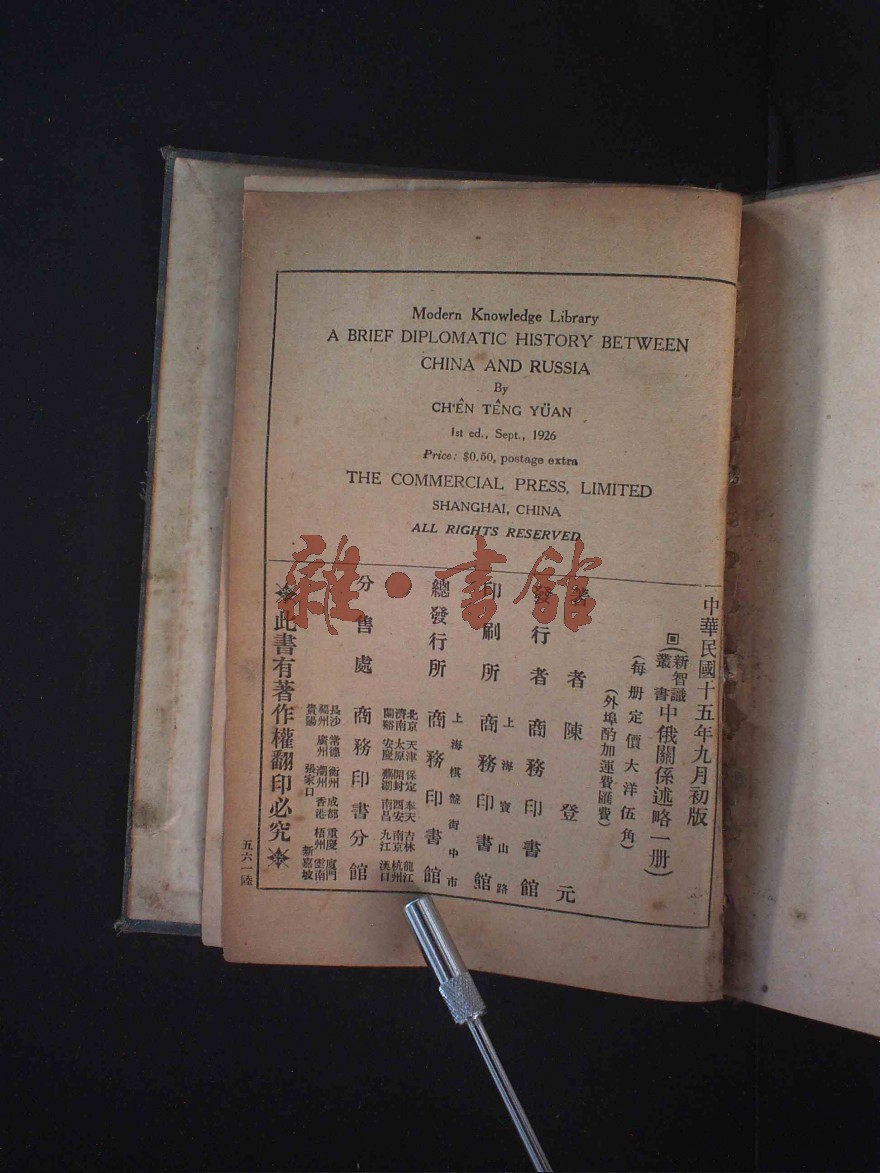 Modern Knowledge Library
A BRIEF DIPLOMATIC HISTORY BETWEEN
CHINA AND RUSSIA
By
CH'ÊN TÊNG YÜAN
1st ed., Sept., 1926
Price: $0.50, postage extra
THE COMMERCIAL PRESS, LIMITED
SHANGHAI, CHINA
ALL RIGHTS RESERVED
雜·書館
中華民國十五年九月初版
回(新智識叢書中俄關係述略一册)
(每册定價大洋伍角)
(外埠酌加運費匯費)
著者 陳登元
發行者 商務印書館
印刷所 上海寶山路 商務印書館
總發行所 上海棋盤街中市 商務印書館
分售處 商務印書分館
北京 天津 保定 奉天 吉林 龍江
濟南 太原 開封 西安 南京 杭州
蘭谿 安慶 蕪湖 南昌 九江 漢口
長沙 常德 衡州 成都 重慶 廈門
福州 廣州 潮州 香港 梧州 雲南
貴陽 張家口 新嘉坡
此書有著作權翻印必究
五六一陸